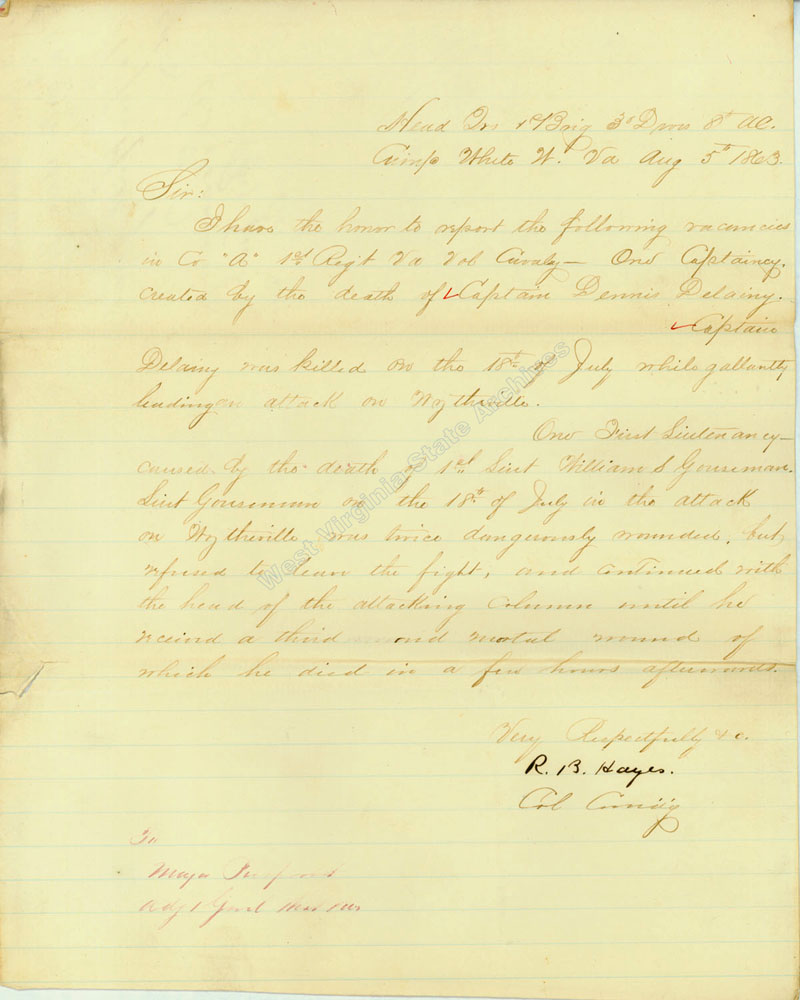 Head Qrs 1st Brig 3d Divis 8th A.C.
Camp White W. Va Aug 5th 1863.
Sir:
I have the honor to report the following vacancies
in Co "A" 1st Regt Va Vol Cavalry— One Captaincy.
created by the death of Captain Dennis Delainy.
Captain
Delainy was killed on the 18th of July while gallantly
leading an attack on Wytheville.
One First Lieutenancy—
caused by the death of 1st Lieut William S Gouseman.
Lieut Gouseman on the 18th of July in the attack
on Wytheville was twice dangerously wounded, but
refused to leave the fight, and continued with
the head of the attacking column until he
received a third and mortal wound of
which he died in a few hours afterwards.
Very Respectfully &c.
R. B. Hayes.
Col Comdg
To
Major
Adjt Genl
West Virginia State Archives